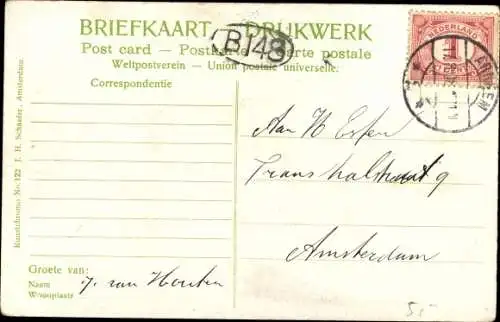 BRIEFKAART — DRUKWERK
Post card — Postkarte — Carte postale
Weltpostverein — Union postale universelle.
B148
NEDERLAND
1
CENT
ARNHEM
Correspondentie
Kunstchromo No. 122 J. H. Schaefer, Amsterdam.
Aan H Esser
Transvalstraat 9
Amsterdam
Groete van:
Naam J. van Houten
Woonplaats
5,-